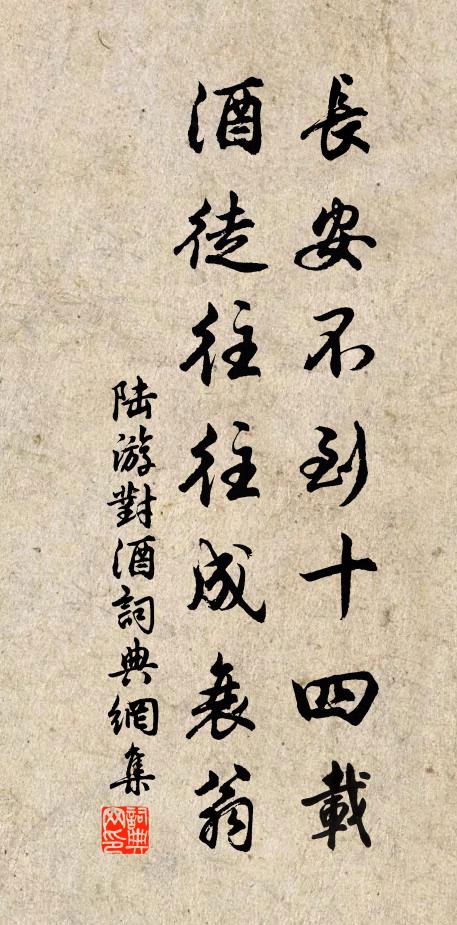 長安不到十四載
酒徒往往成衰翁
陆游對酒詞典網集
詞典網印